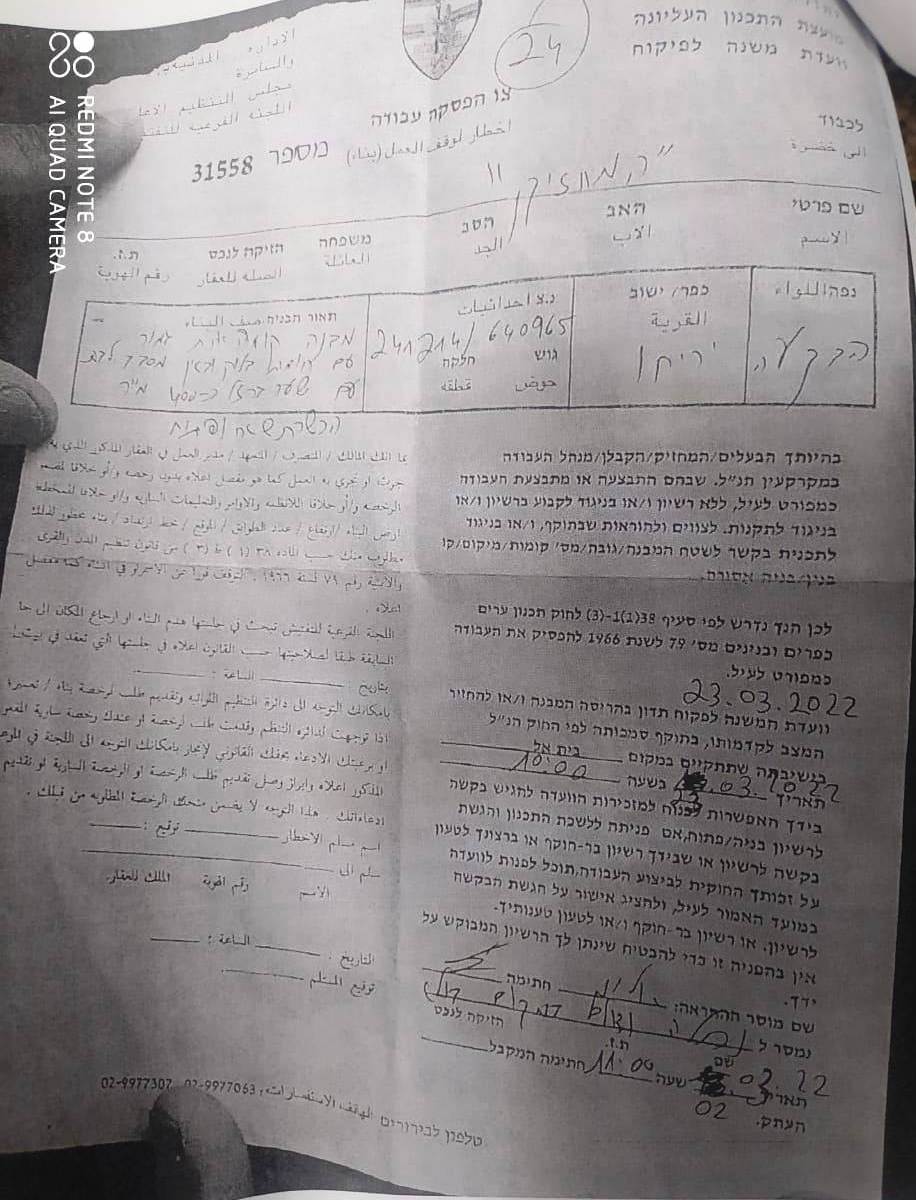 מועצת התכנון העליונה
ועדת משנה לפיקוח
24
والسامرة
لכבוד
الى حضرة
צו הפסקת עבודה
اخطار لوقف العمل (بناء)
מספר 31558
המחזיק
שם פרטי האב הסב משפחה הזיקה לנכס ת.ז.
الاسم الاب الجد العائلة الصله للعقار رقم الهوية
נפה اللواء
הבקעה
כפר/ ישוב
القرية
יריחו
נ.צ احداثيات
241214/640965
גוש חלקה
حوض قطعه
תאור הבניה صنف البناء
מבנה קומה אחת
עם
עם שער ברזל כ-400 מ"ר
הכשרת שטח
בהיותך הבעלים/המחזיק/הקבלן/מנהל העבודה
במקרקעין הנ"ל. שבהם התבצעה או מתבצעת העבודה
כמפורט לעיל, ללא רשיון ו/או בניגוד לקבוע ברשיון ו/או
בניגוד לתקנות. לצווים ולהוראות שבתוקף, ו/או בניגוד
לתכנית בקשר לשטח המבנה/גובה/מס' קומות/מיקום/קו
בנין/בניה אסורה.
לכן הנך נדרש לפי סעיף 38(1)-(3) לחוק תכנון ערים
כפרים ובנינים מס' 79 לשנת 1966 להפסיק את העבודה
כמפורט לעיל.
23.03.2022
וועדת המשנה לפקוח תדון בהריסת המבנה ו/או להחזיר
המצב לקדמותו, בתוקף סמכותה לפי החוק הנ"ל
בישיבתה שתתקיים במקום בית אל
תאריך .03.2022 בשעה 10:00
בידך האפשרות לפנות למזכירות הוועדה להגיש בקשה
לרשיון בניה/פתוח, אם פניתה ללשכת התכנון והגשת
בקשה לרשיון או שבידך רשיון בר-תוקף או ברצונך לטעון
על זכותך החוקית לביצוע העבודה, תוכל לפנות לוועדה
במועד האמור לעיל, ולהציג אישור על הגשת הבקשה
לרשיון. או רשיון בר-תוקף ו/או לטעון טענותיך.
אין בהפניה זו כדי להבטיח שינתן לך הרשיון המבוקש על
ידך.
שם מוסר ההתראה: חתימה
נמסר ל
שם ת.ז. הזיקה לנכס
תאריך 02.22 שעה 11:00 חתימת המקבל
02
העתק.
بما انك المالك / المتصرف / المتعهد / مدير العمل في العقار المذكور الذي به
جرت او تجري به العمل كما هو مفصل اعلاه بدون رخصه و/أو خلافا
الرخصه و/أو خلافا للانظمه والاوامر والتعليمات الساريه و/او خلافا للمخطط
ارض البناء / ارتفاع / عدد الطوابق / الموقع / خط ارتداد / بناء محظور لذلك
مطلوب منك حسب الماده ٣٨ (١) ط (٣) من قانون تنظيم المدن والقرى
والأبنية رقم ٧٩ لسنة ١٩٦٦. التوقف فورا عن الاستمرار في البناء كما مفصل
اعلاه .
اللجنة الفرعية للتفتيش تبحث في جلستها هدم البناء او ارجاع المكان الى
السابقة طبقا لصلاحيتها حسب القانون اعلاه في جلستها التي تعقد في
بتاريخ الساعة :
بامكانك التوجه الى دائرة التنظيم اللوائيه وتقديم طلب لرخصة بناء / تعمير
اذا توجهت لدائرة التنظيم وقدمت طلب لرخصة او عندك رخصة سارية
او برغبتك الادعاء بحقك القانوني لانجاز بامكانك التوجه الى اللجنة في
المذكور اعلاه وابراز وصل تقديم طلب الرخصة او الرخصة السارية او تقديم
ادعاءاتك . هذا التوجه لا يضمن منحك الرخصة المطلوبه من قبلك .
اسم مسلم الاخطار توقيع :
سلم الى
الاسم رقم الهوية المالك للعقار.
التاريخ : الساعة :
توقيع المستلم
טלפון לבירורים الهاتف للاستفسارات, 02-9977063, 02-9977307
REDMI NOTE 8
AI QUAD CAMERA